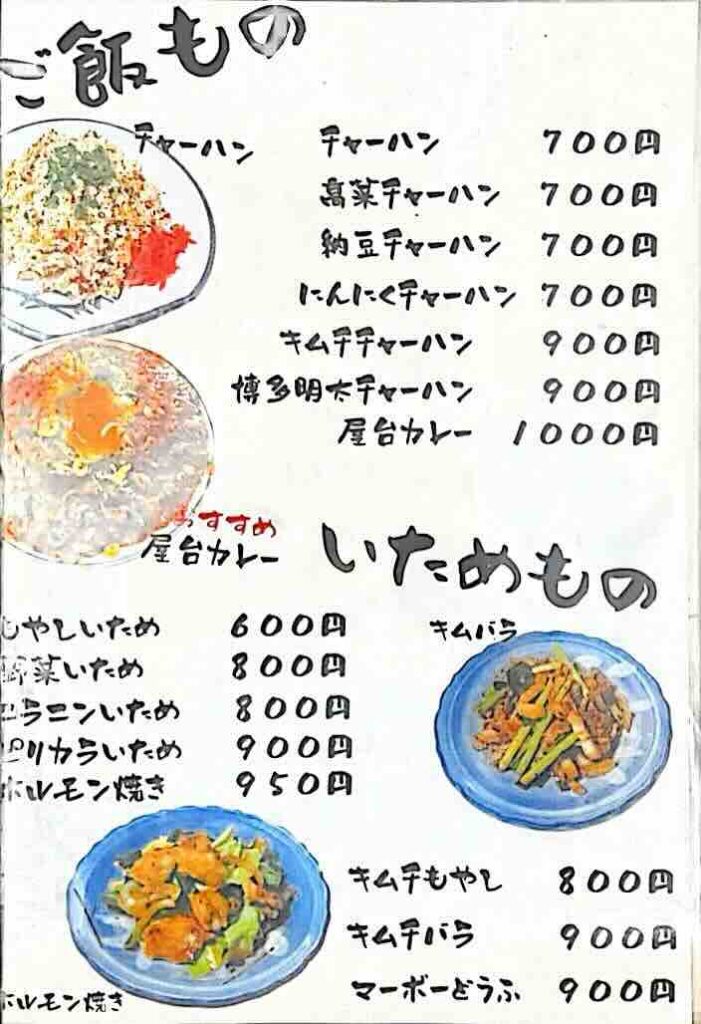 ご飯もの
チャーハン
チャーハン 700円
高菜チャーハン 700円
納豆チャーハン 700円
にんにくチャーハン 700円
キムチチャーハン 900円
博多明太チャーハン 900円
屋台カレー 1000円
おすすめ
屋台カレー
いためもの
もやしいため 600円
野菜いため 800円
ニラニンいため 800円
ピリカラいため 900円
ホルモン焼き 950円
キムバラ
キムチもやし 800円
キムチバラ 900円
マーボーどうふ 900円
ホルモン焼き